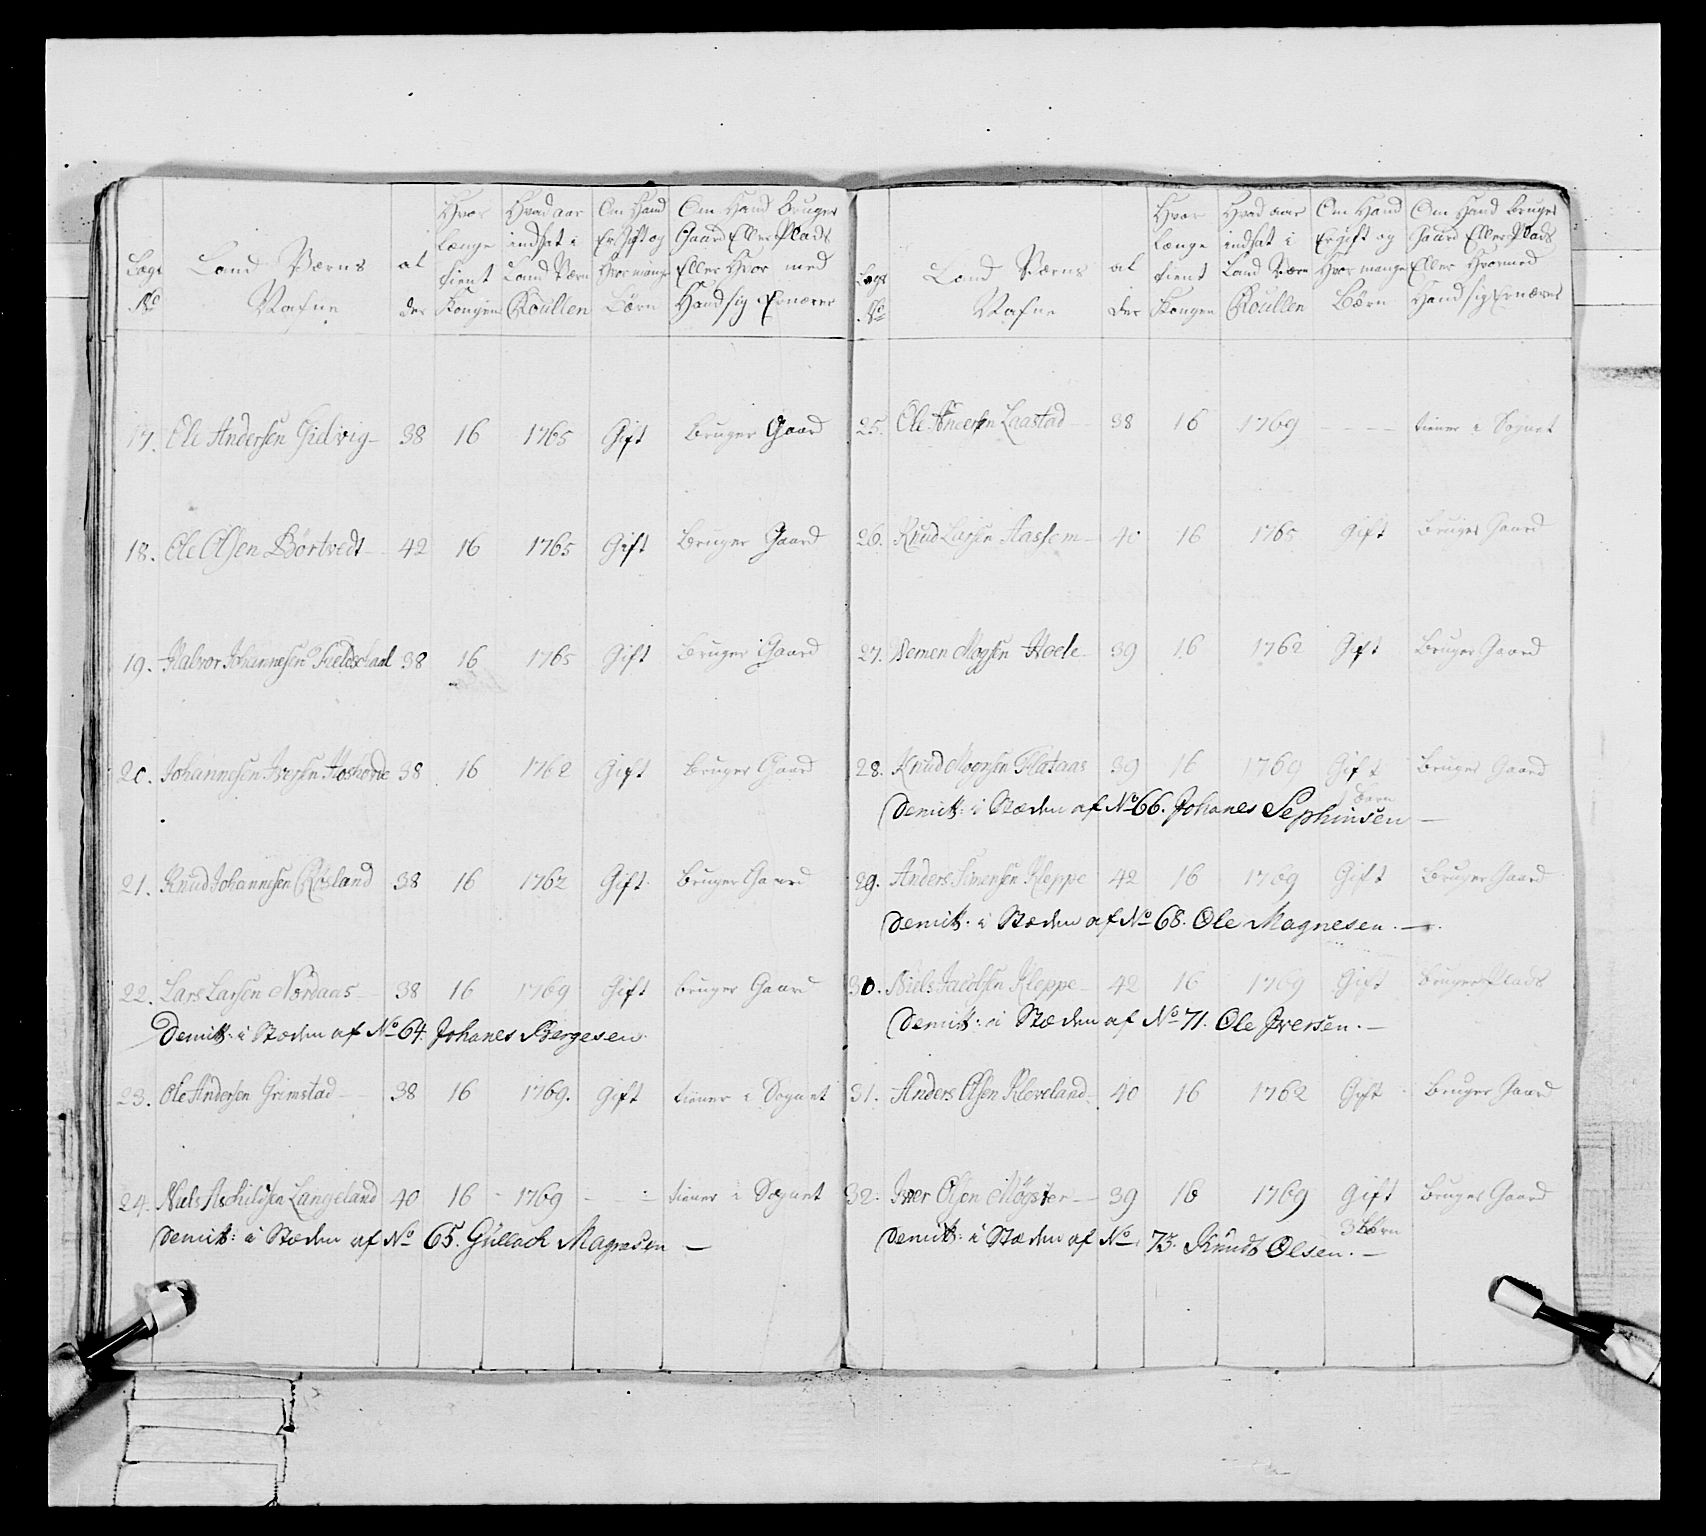 Legs No
Land Værns Nafne
al der
Hvor længe tient Kongen
Hvad aar indsat i Land Værn Roullen
Om Hand Er Gift og Hvor mange Børn
Om Hand Bruger Gaard Eller Plads Eller Hvor med Hand sig Ernærer
17. Ole Andersen Gielvig 38 16 1765 Gift Bruger Gaard
18. Ole Olsen Børtvedt 42 16 1765 Gift Bruger Gaard
19. Halvor Johannesen 38 16 1765 Gift Bruger Gaard
20. Johannesen Iversen 38 16 1762 Gift Bruger Gaard
21. Knud Johannesen Røsland 38 16 1762 Gift Bruger Gaard
22. Lars Larsen Nordaas 38 16 1769 Gift bruger Gaard
Demitt: i Stæden af No 64. Johanes Børgesen
23. Ole Andersen Grimstad 38 16 1769. Gift tiener i Sognet
24. Niels Aschildsen Langeland 40 16 1769 - - tiener i Sognet
Demitt: i Stæden af No 65. Gullach Magnesen —
Legs No
Land Værns Nafne
al der
Hvor længe tient Kongen
Hvad aar indsat i Land Værn Roullen
Om Hand Er gift og Hvor mange Børn
Om Hand Bruger Gaard Eller Plads Eller Hvormed Hand sig Ernærer
25. Ole Andersen Laastad 38 16 1769 - - - tiener i Sognet
26. Knud Larsen 40 16 1765 Gift Bruger Gaard
27. Monsen 39 16 1762 Gift Bruger Gaard
28. Knud Monsen Flataas 39 16 1769 Gift Bruger Gaard
Børn
Demitt: i Stæden af No 66. Johanes Sephinsen —
29. Anders Simensen Kleppe 42 16 1769 Gift Bruger Gaard
Demitt: i Stæden af No 68. Ole Magnesen. —
30. Niels Jacobsen Kleppe 42 16 1769 Gift Bruger Plads
Demitt: i Stæden af No 71. Ole Iversen. —
31. Anders Olsen Kleveland 40 16 1762 Gift Bruger Gaard
32. Iver Olsen Møgster 39 16 1769 Gift Bruger Gaard
3 Børn
Demitt: i Stæden af No 73. Knudt Olsen. —